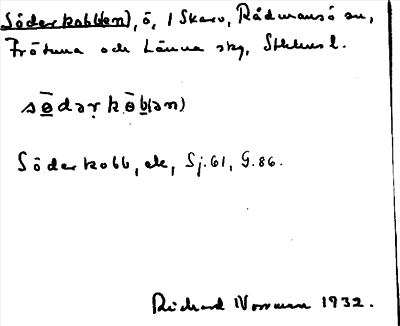 Söderkobb(en), ö, i Skaro, Rådmansö sn,
Frötuna och Länna skg, Sthlms l.
södərkob(ən)
Söderkobb, ek, Sj.61, G.86.
Richard Norrman 1932.